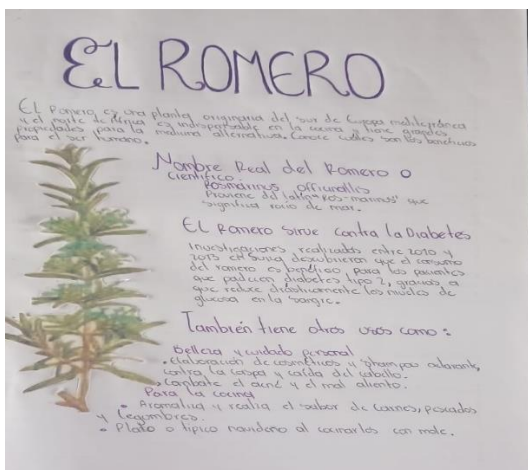 EL ROMERO
El Romero es una planta originaria del sur de Europa mediterránea
y el norte de África es indispensable en la cocina y tiene grandes
propiedades para la medicina alternativa. Conoce cuáles son los beneficios
para el ser humano.
Nombre Real del Romero o
Científico:
Rosmarinus officinallis
Proviene del latín "ros-marinus" que
significa rocio de mar.
EL Romero sirve contra la Diabetes
Investigaciones realizadas entre 2010 y
2013 en Suiza descubrieron que el consumo
del romero es benéfico para los pacientes
que padecen diabetes tipo 2, gracias a
que reduce drásticamente los niveles de
glucosa en la sangre.
También tiene otros usos como:
Belleza y cuidado personal
• Elaboración de cosméticos y shampoo
contra la caspa y caída del cabello.
• Combate el acné y el mal aliento.
Para la cocina
• Aromatiza y realza el sabor de carnes, pescados
y Legumbres.
• Plato típico navideño al cocinarlos con mole.